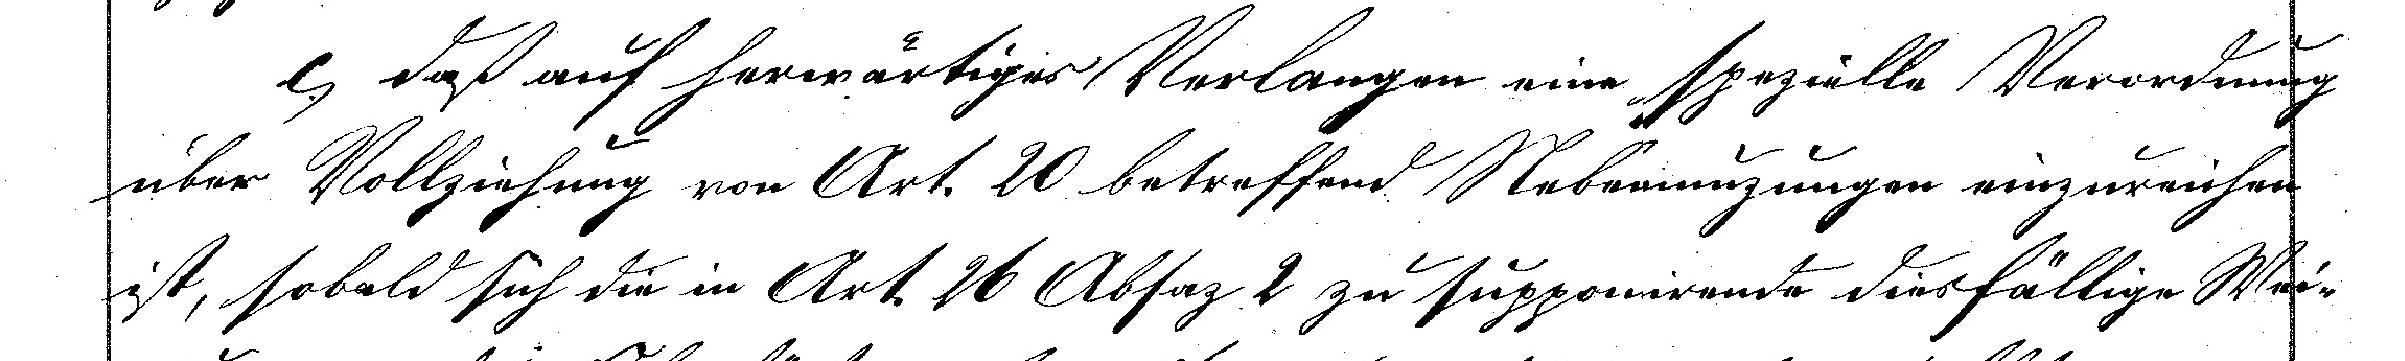 c, daß auf herwärtiges Verlangen eine spezielle Verordnung
über Vollziehung von Art. 20 betreffend Nebennuzungen einzureichen
ist, sobald sich die in Art. 26 Absaz 2 zu supponirende diesfällige Wei-